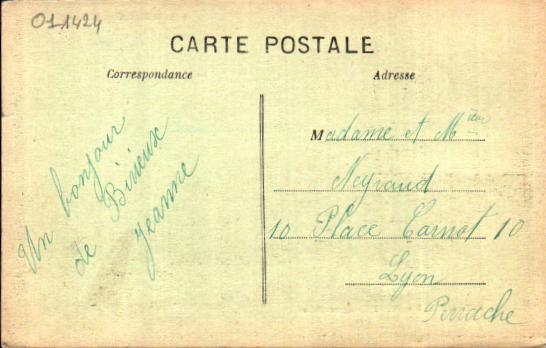 01.1424
CARTE POSTALE
Correspondance
Adresse
Un bonjour
de Birieux
Jeanne
Madame et Mr
Neyraud
10 Place Carnot 10
Lyon
Perrache